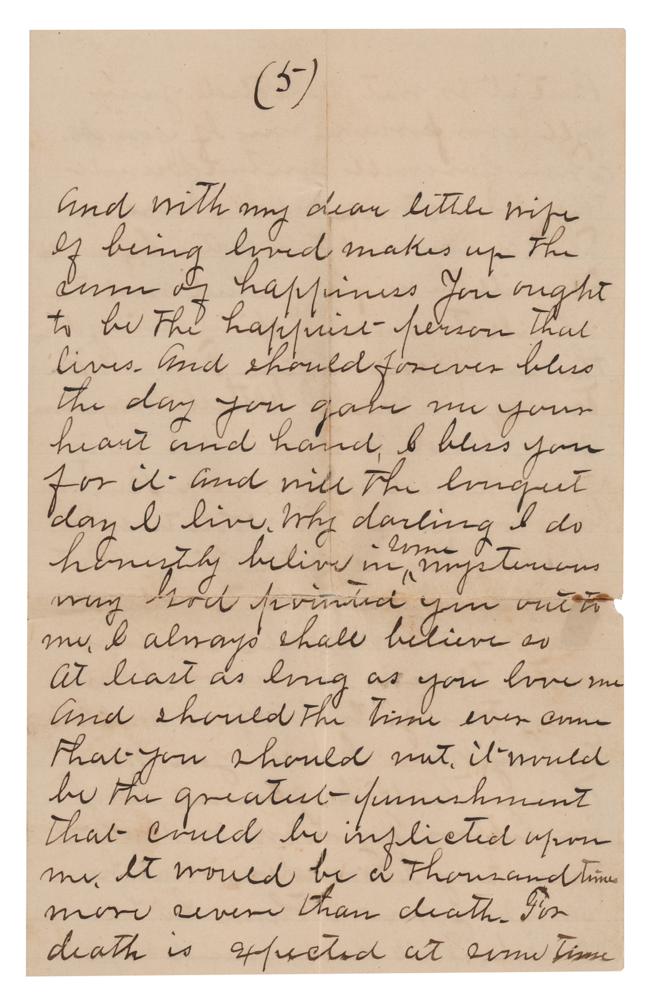 (5)
And with my dear little wife
If being loved makes up the
sum of happiness You ought
to be the happiest person that
lives. And should forever bless
the day you gave me your
heart and hand, I bless you
for it And will the longest
day I live. Why darling I do
honestly belive in some mysterious
way God pointed you out to
me, I always shall believe so
At least as long as you love me
And should the time ever come
that you should not, it would
be the greatest punishment
that could be inflicted upon
me. It would be a thousand times
more severe than death. For
death is expected at some time